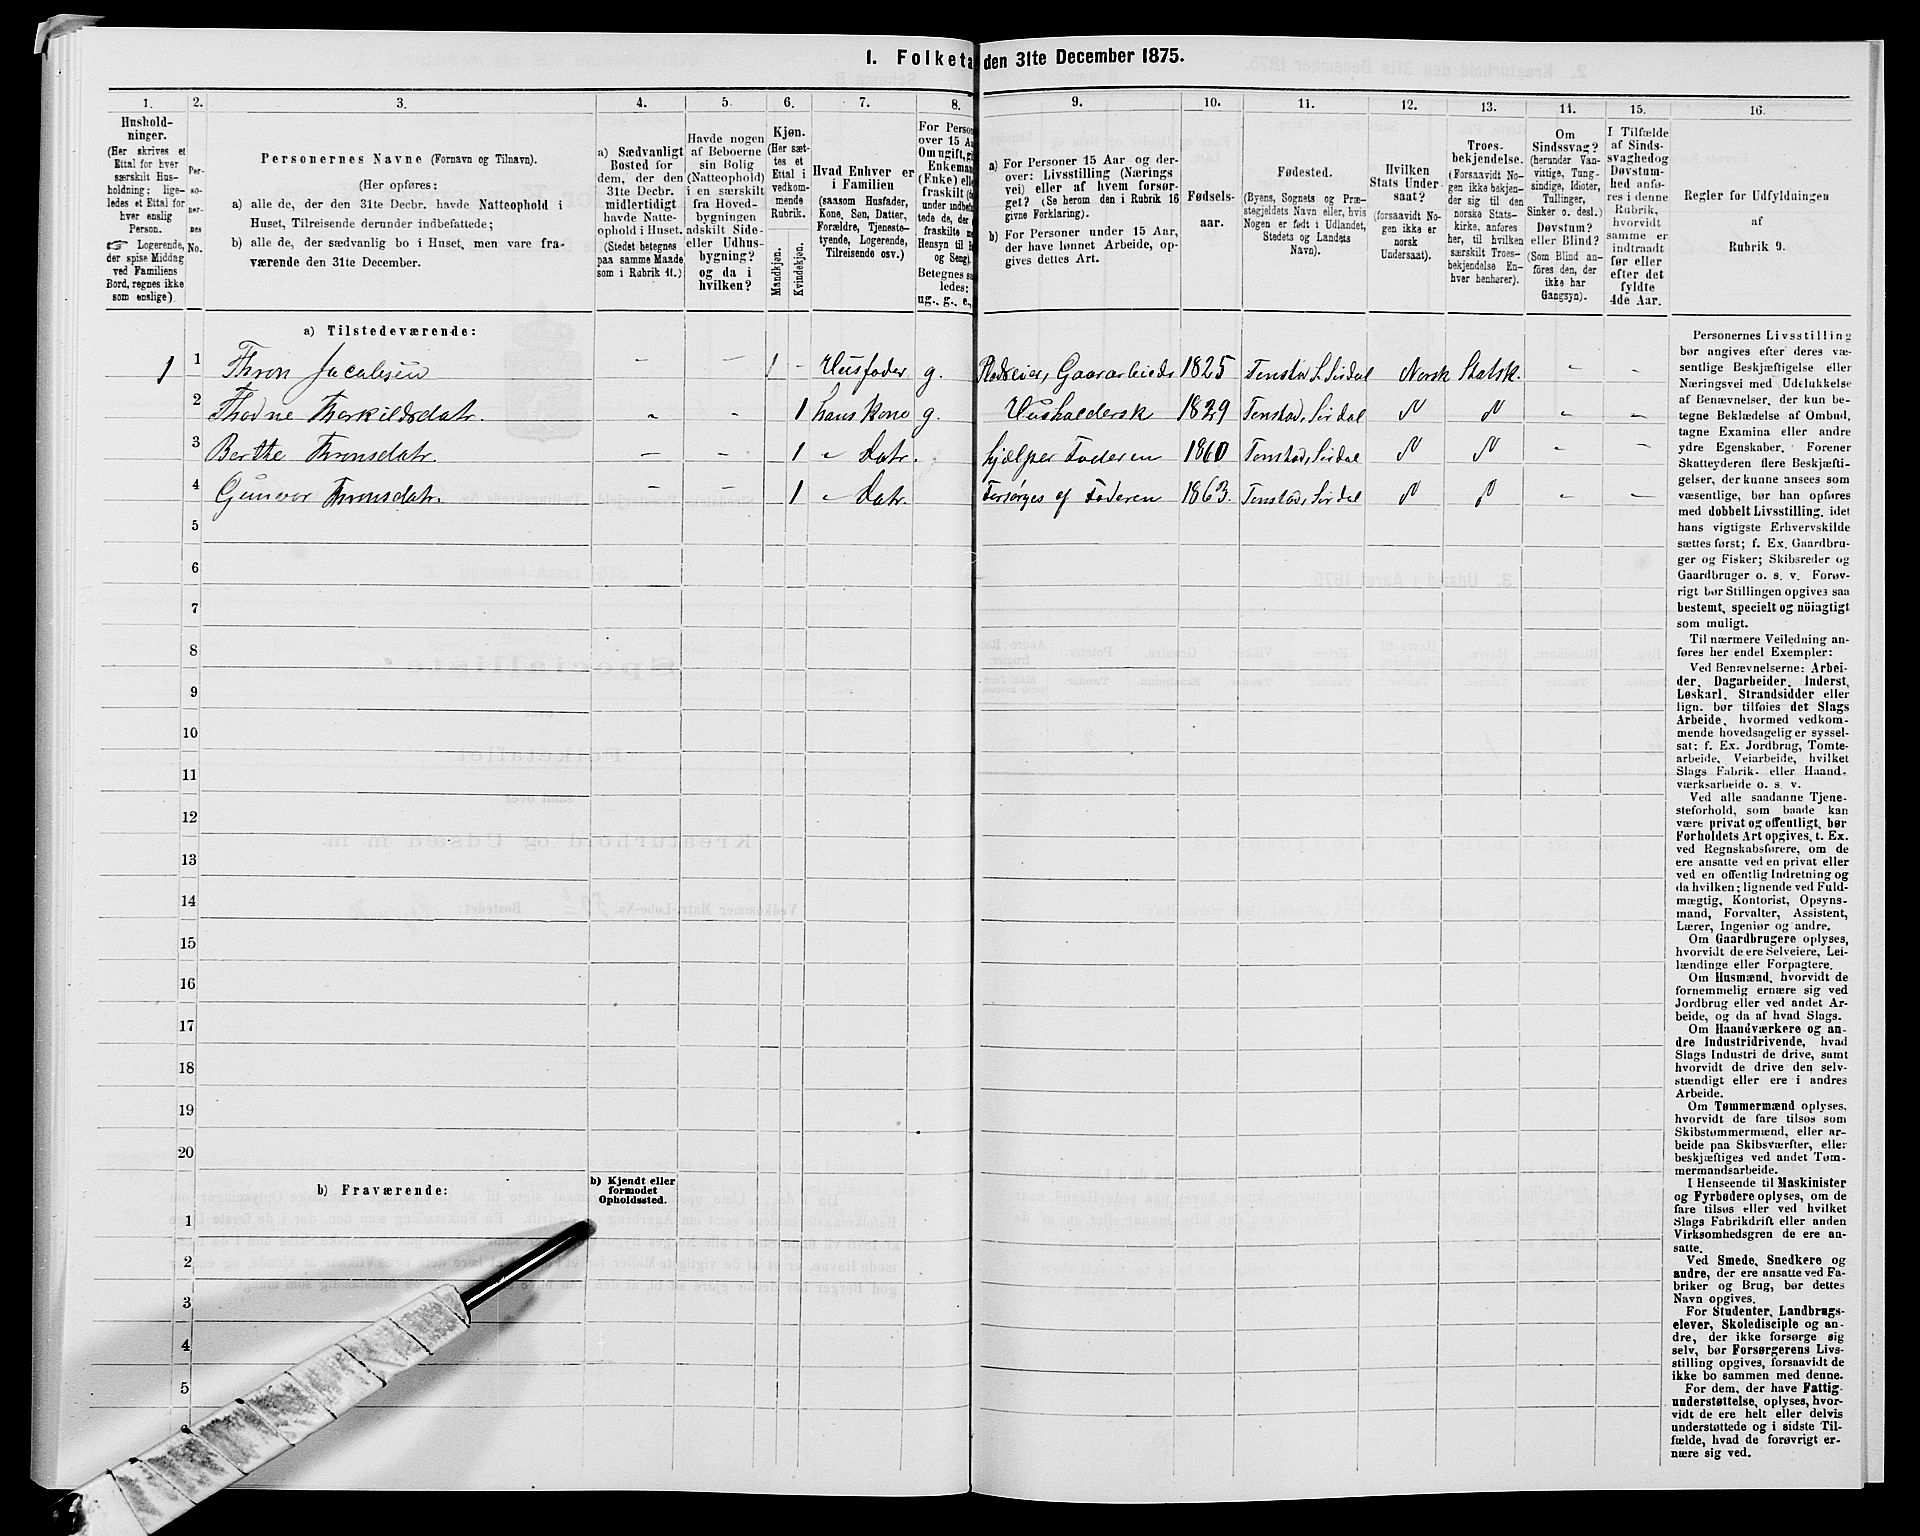 1. Folketa den 31te December 1875.
1. 2. 3. 4. 5. 6. 7. 8. 9. 10. 11. 12. 13. 14. 15. 16
Hushold-
ninger.
(Her skrives et
Ettal for hver
særskilt Hus-
holdning; lige-
ledes et Ettal for
hver enslig
Person.
☞ Logerende,
der spise Middag
ved Familiens
Bord, regnes ikke
som enslige)
Per-
so-
ner-
nes
No.
Personernes Navne (Fornavn og Tilnavn).
(Her opføres:
a) alle de, der den 31te Decbr. havde Natteophold i
Huset, Tilreisende derunder indbefattede;
b) alle de, der sædvanlig bo i Huset, men vare fra-
værende den 31te December.
a) Sædvanligt
Bosted for
dem, der den
31te Decbr.
midlertidigt
havde Natte-
ophold i Huset.
(Stedet betegnes
paa samme Maade
som i Rubrik 11.)
Havde nogen
af Beboerne
sin Bolig
(Natteophold)
i en særskilt
fra Hoved-
bygningen
adskilt Side-
eller Udhus-
bygning?
og da i
hvilken?
Kjøn.
(Her sæt-
tes et
Ettal i
vedkom-
mende
Rubrik.
Mandkjøn.
Kvindekjøn.
Hvad Enhver er
i Familien
(saasom Husfader,
Kone, Søn, Datter,
Forældre, Tjeneste-
tyende, Logerende,
Tilreisende osv.)
For Person
over 15 Aa
Om ugift, gi
Enkeman
(Enke) elle
fraskilt (i
under indbefa
tede de, der
fraskilte m
Hensyn til B
og Seng).
Betegnes sa
ledes:
ug., g., e.,
a) For Personer 15 Aar og der-
over: Livsstilling (Nærings
vei) eller af hvem forsør-
get? (Se herom den i Rubrik 16
givne Forklaring).
b) For Personer under 15 Aar,
der have lønnet Arbeide, op-
gives dettes Art.
Fødsels-
aar.
Fødested.
(Byens, Sognets og Præ-
stegjeldets Navn eller, hvis
Nogen er født i Udlandet,
Stedets og Landets
Navn).
Hvilken
Stats Under
saat?
(forsaavidt No-
gen ikke er
norsk
Undersaat).
Troes-
bekjendelse.
(Forsaavidt No-
gen ikke bekjen-
der sig til den
norske Stats-
kirke, anføres
her, til hvilken
særskilt Troes-
bekjendelse En-
hver henhører).
Om
Sindssvag?
(herunder Van-
vittige, Tung-
sindige, Idioter,
Tullinger,
Sinker o. desl.)
Døvstum?
eller Blind?
(Som Blind an-
føres den, der
ikke har
Gangsyn).
I Tilfælde
af Sinds-
svaghed og
Døvstum-
hed anfø-
res i denne
Rubrik,
hvorvidt
samme er
indtraadt
før eller
efter det
fyldte
4de Aar.
Regler for Udfyldningen
af
Rubrik 9.
a) Tilstedeværende:
1 1 Thron Jacobsen – – 1 – Husfader g. Gaararbeider 1825 Tonstad, Sirdal Norsk Statsk. – –
2 Thorkildsdatr. – – 1 hans Kone g Husholdersk 1829 Tonstad, Sirdal N N – –
3 Berthe Thronsdatr. – – 1 „ Datr. hjælper Faderen 1860 Tonstad, Sirdal N N –
4 Gunvor Thronsdatr. – – 1 „ Datr. Forsørges af Faderen 1863. Tonstad, Sirdal N N – –
5
6
7
8
9
10
11
12
13
14
15
16
17
18
19
20
b) Fraværende:
b) Kjendt eller
formodet
Opholdssted.
1
2
3
4
5
Personernes Livsstilling
bør angives efter deres væ-
sentlige Beskjæftigelse eller
Næringsvei med Udelukkelse
af Benævnelser, der kun be-
tegne Beklædelse af Ombud,
tagne Examina eller andre
ydre Egenskaber. Forener
Skatteyderen flere Beskjæfti-
gelser, der kunne ansees som
væsentlige, bør han opføres
med dobbelt Livsstilling, idet
hans vigtigste Erhvervskilde
sættes først; f. Ex. Gaardbru-
ger og Fisker; Skibsreder og
Gaardbruger o. s. v. Forøv-
rigt bør Stillingen opgives saa
bestemt, specielt og nöiagtigt
som muligt.
Til nærmere Veiledning an-
føres her endel Exempler:
Ved Benævnelserne: Arbei-
der, Dagarbeider, Inderst,
Løskarl, Strandsidder eller
lign. bør tilføies det Slags
Arbeide, hvormed vedkom-
mende hovedsagelig er syssel-
sat: f. Ex. Jordbrug, Tomte-
arbeide, Veiarbeide, hvilket
Slags Fabrik- eller Haand-
værksarbeide o. s. v.
Ved alle saadanne Tjene-
steforhold, som baade kan
være privat og offentligt, bør
Forholdets Art opgives, t. Ex.
ved Regnskabsførere, om de
ere ansatte ved en privat eller
ved en offentlig Indretning og
da hvilken; lignende ved Fuld-
mægtig, Kontorist, Opsyns-
mand, Forvalter, Assistent,
Lærer, Ingeniør og andre.
Om Gaardbrugere oplyses,
hvorvidt de ere Selveiere, Lei-
lændinge eller Forpagtere.
Om Husmænd, hvorvidt de
fornemmelig ernære sig ved
Jordbrug eller ved andet Ar-
beide, og da af hvad Slags.
Om Haandværkere og an-
dre Industridrivende, hvad
Slags Industri de drive, samt
hvorvidt de drive den selv-
stændigt eller ere i andres
Arbeide.
Om Tømmermænd oplyses,
hvorvidt de fare tilsøs som
Skibstømmermænd, eller ar-
beide paa Skibsværfter, eller
beskjæftiges ved andet Tøm-
mermandsarbeide.
I Henseende til Maskinister
og Fyrbødere oplyses, om de
fare tilsøs eller ved hvilket
Slags Fabrikdrift eller anden
Virksomhedsgren de ere an-
satte.
Ved Smede, Snedkere og
andre, der ere ansatte ved Fa-
briker og Brug, bør dettes
Navn opgives.
For Studenter, Landbrugs-
elever, Skoledisciple og an-
dre, der ikke forsørge sig
selv, bør Forsørgerens Livs-
stilling opgives, forsaavidt de
ikke bo sammen med denne.
For dem, der have Fattig-
understøttelse, oplyses, hvor-
vidt de ere helt eller delvis
understøttede og i sidste Til-
fælde, hvad de forøvrigt er-
nære sig ved.